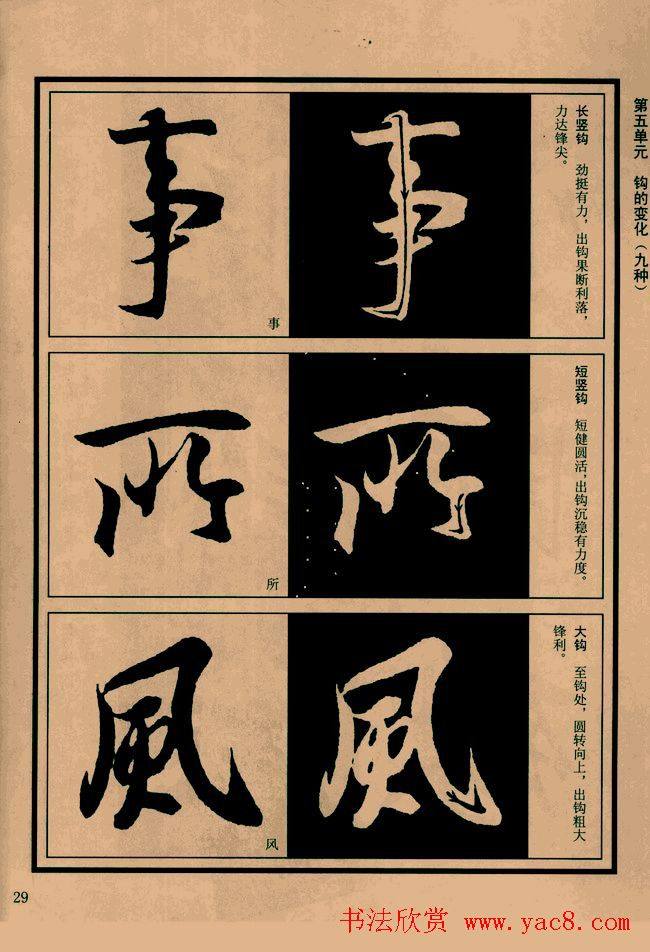 第五单元　钩的变化（九种）
长竖钩　劲挺有力，出钩果断利落，
力达锋尖。
事
事
事
短竖钩　短健圆活，出钩沉稳有力度。
所
所
所
大钩　至钩处，圆转向上，出钩粗大
锋利。
風
風
风
29
书法欣赏 www.yac8.com